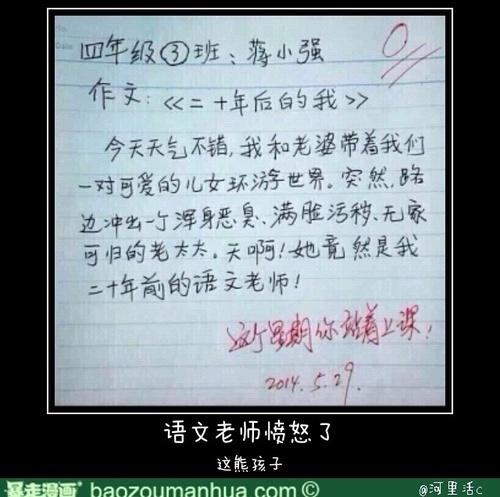 四年级③班:蒋小强
0
作文:《二十年后的我》
今天天气不错,我和老婆带着我们
一对可爱的儿女环游世界。突然,路
边冲出一个浑身恶臭、满脸污秽、无家
可归的老太太。天啊!她竟然是我
二十年前的语文老师!
这个星期你站着上课!
2014.5.29.
语文老师愤怒了
这熊孩子
暴走漫画 baozoumanhua.com
@河里活c